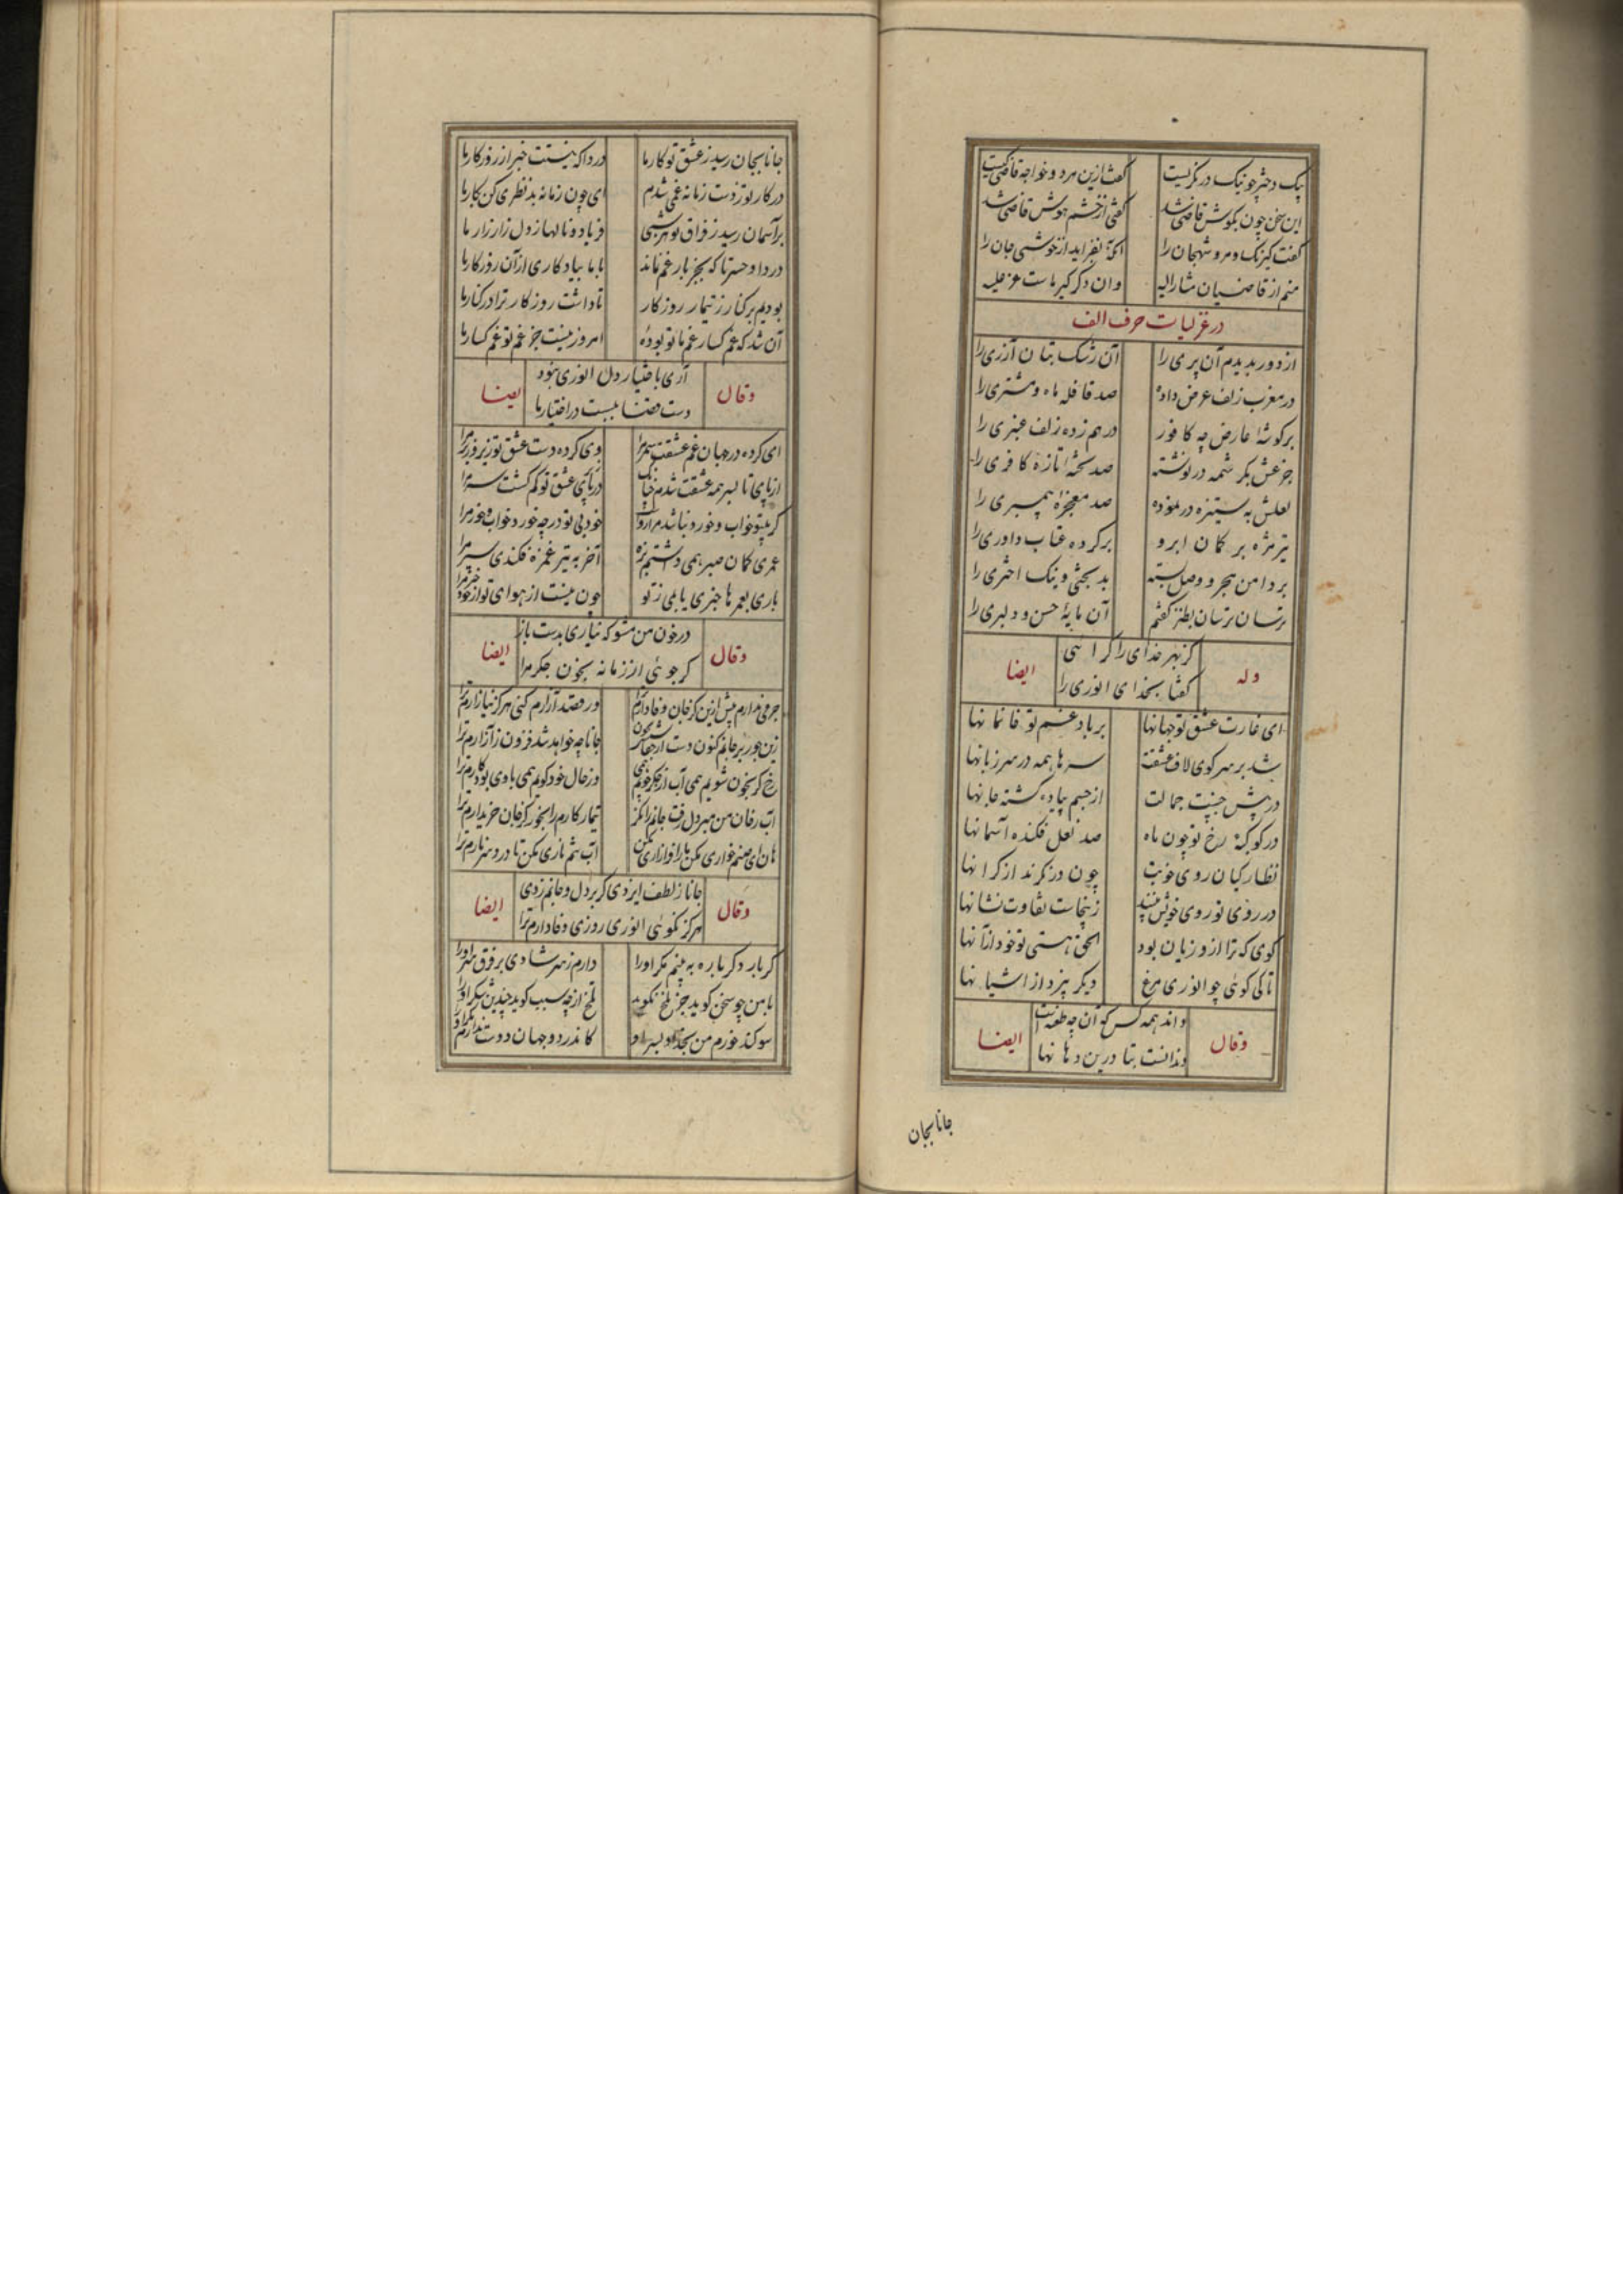 یک دختر چو نیک در نگریست گفت ازین مرد و خواجه قاضی کیست
این سخن چون بگوش قاضی شد گفتی از خشم هوش قاضی شد
گفت گیرنگ و مرو شهجان را آنکه بفزاید از خوشی جان را
منم از قاضیان مشار الیه وان دگر کیر ماست عز علیه
در غزلیات حرف الف
از دور بدیدم آن پری را آن رشک بتان آزری را
در مغرب زلف عرض داده صد قافله ماه و مشتری را
بر گوشهٔ عارض چه کافور درهم زده زلف عنبری را
جزعش بکر شمه در نوشته صد تختهٔ تازه کافری را
لعلش به ستیزه در نموده صد معجزهٔ پیمبری را
تیر مژه بر کمان ابرو بر کرده عتاب داوری را
بر دامن هجر و وصل بسته بدبختی و نیک اختری را
ترسان ترسان بطنز گفتم آن مایهٔ حسن و دلبری را
وله
کز بهر خدای را کرائی
گفتا بخدای انوری را
ایضا
ای غارت عشق تو جهانها بر باد غم تو خانمانها
شد بر سر کوی لاف عشقت سرها همه در سر زبانها
در پیش جنیبت جمالت از جسم پیاده گشته جانها
در کوکبهٔ رخ تو چون ماه صد نعل فکنده آسمانها
نظارگیان روی خوبت چون در نگرند از کرانها
در روی تو روی خویش بینند زینجاست تفاوت نشانها
گوی که ترا ازو زیان بود الحق هستی تو خود از آنها
تا کی گوئی چو انوری مرغ دیگر نپرد از اشیانها
وقال
داند همه کس که آن چه طعنست
دندانست بتا درین دهانها
ایضا
جانا بجان
جانا بجان رسید ز عشق تو کار ما دردا که نیستت خبر از روزگار ما
در کار تو ز دست زمانه غمی شدم ای چون زمانه بد نظری کن بکار ما
بر آسمان رسید ز فراق تو هر شبی فریاد و نالهای دل زار زار ما
دردا و حسرتا که بجز بار غم نماند با ما بیادگاری از آن روزگار ما
بودیم بر کنار ز تیمار روزگار تا داشت روزگار ترا در کنار ما
آن شد که غمگسار غم ما تو بودهٔ امروز نیست جز غم تو غمگسار ما
وقال
آری باختیار دل انوری نبود
دست قضا ببست در اختیار ما
ایضا
ای کرده در جهان غم عشقت سمر مرا وی کرده دست عشق تو زیر و زبر مرا
از پای تا بسر همه عشقت شدم چنانک در پای عشق تو گم گشت سر مرا
گر بیتو خواب و خورد نباشد مرا رواست خود بی تو در چه خورد و خواب و خور مرا
عمری کمان صبر همی داشتم بزه آخر به تیر غمزه فکندی سپر مرا
باری بعمرها خبری یابمی ز تو چون نیست از هوای تو از خود خبر مرا
وقال
در خون من مشو که نیاری بدست باز
گر جوئی از زمانه بخون جگر مرا
ایضا
جرمی ندارم بیش ازین کز جان وفادارم ترا ور قصد آزارم کنی هرگز نیازارم ترا
زین جور بر جانم کنون دست از جفا شستی بخون جانا چه خواهد شد فزون ز آزارم ترا
رخ گر بخون شویم همی آب از جگر جویم همی در حال خود گویم همی یادی بود کارم ترا
آب رخان من مبر دل رفت جانم را نگر تیمار کارم را بخور کز جان خریدارم ترا
هان ای صنم خواری مکن ما را وازاری مکن آب چشم تازی مکن تا در دسر نارم ترا
وقال
جانا ز لطف ایزدی گر بر دل و جانم زدی
هرگز نگوئی انوری روزی وفادارم ترا
ایضا
گر بار دگرباره به بینم مگر او را دارم ز سر شادی بر فرق سر او را
با من چو سخن گوید جز تلخ نگوید تلخ از چه سبب گوید چندین شکر او را
سوگند خورم من بخدا و بسر او کاندر دو جهان دوست ندارم مگر او را